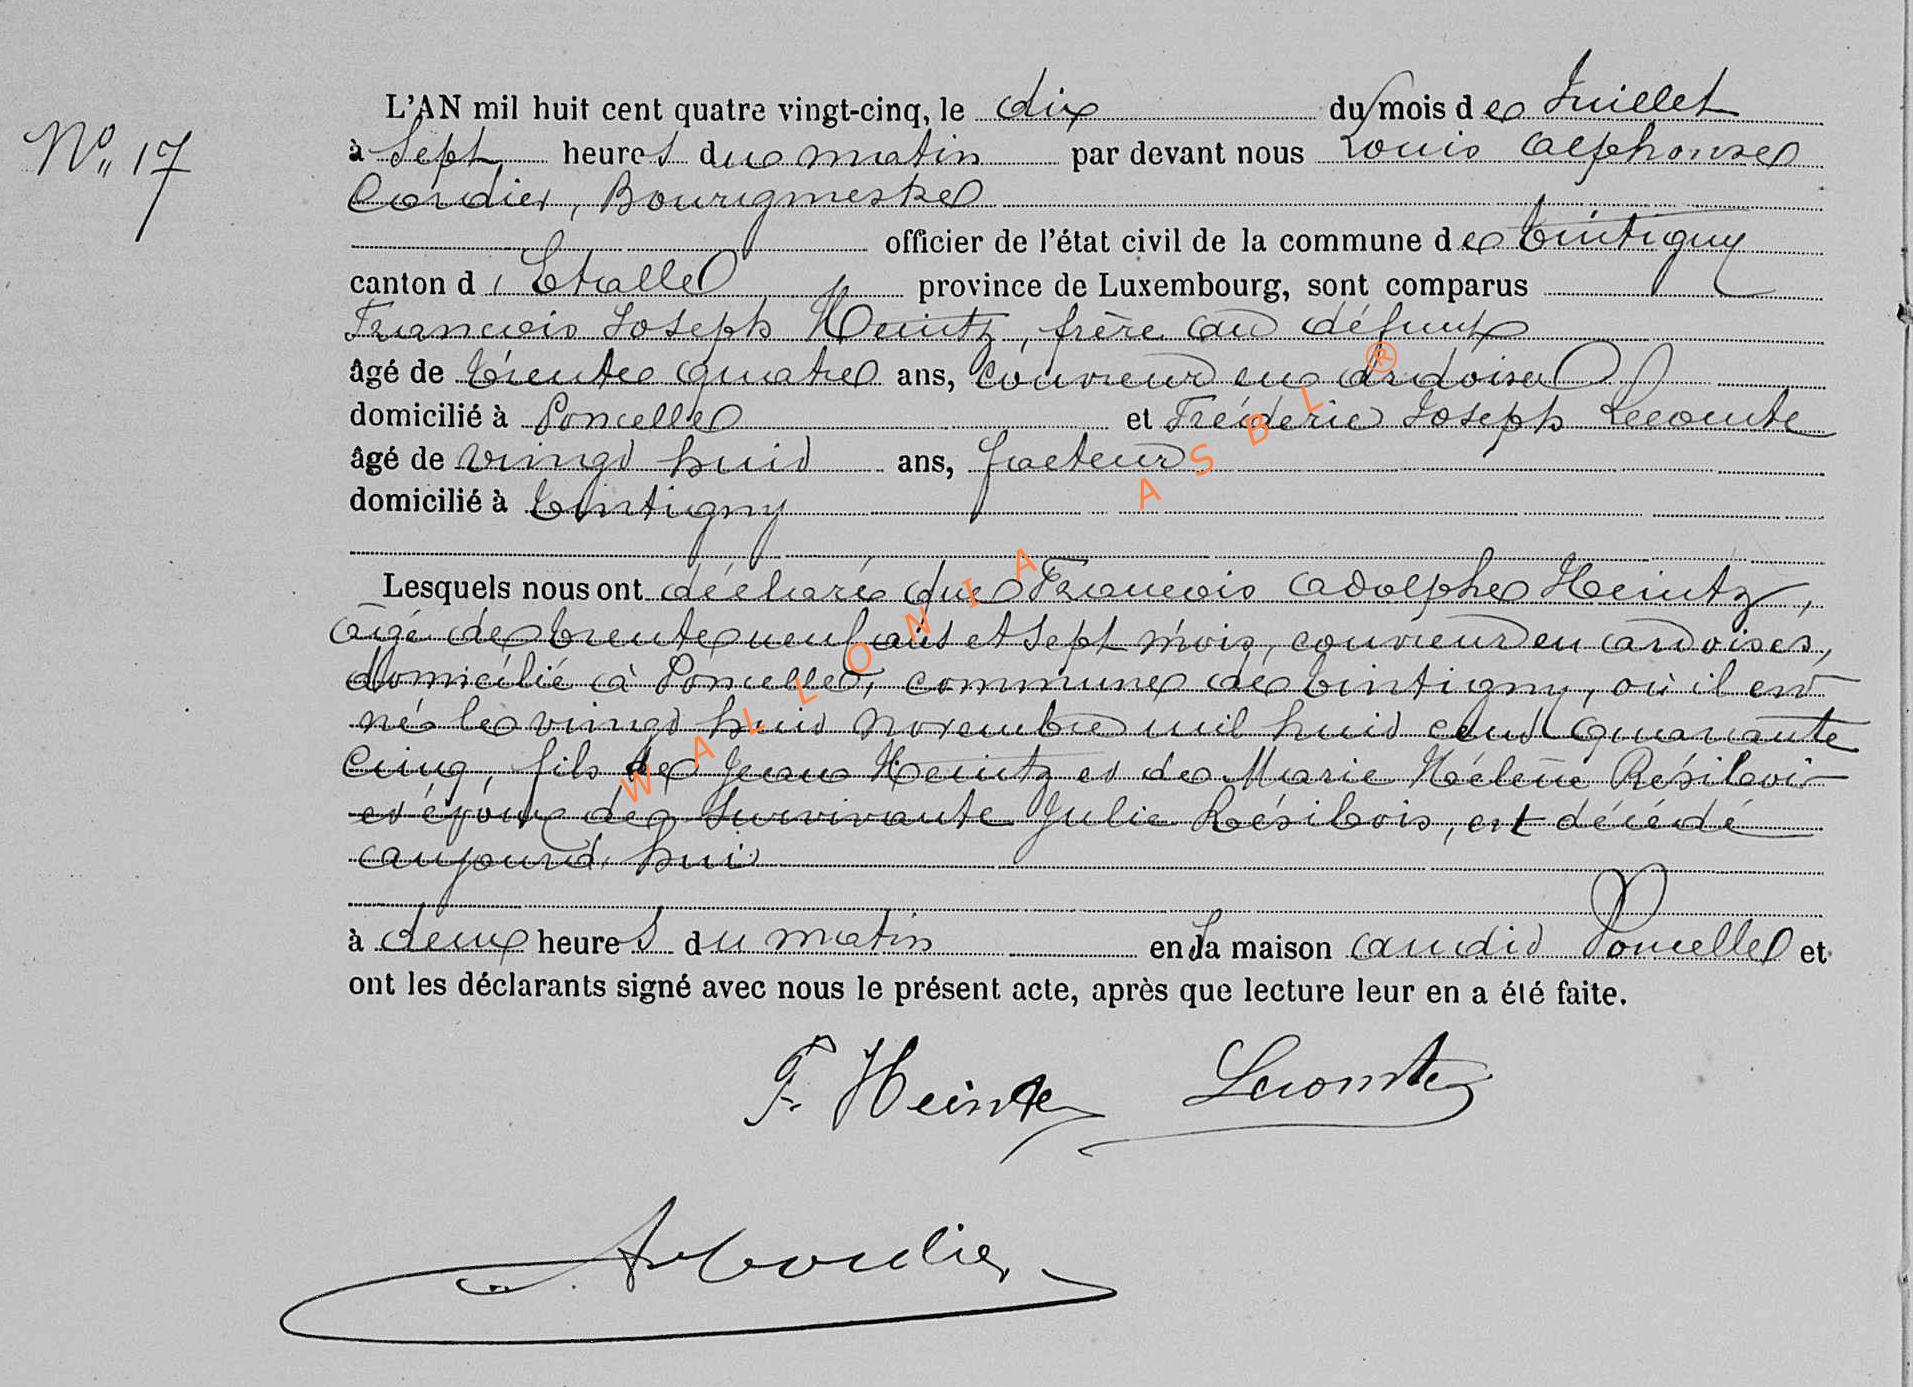 N° 17
L'AN mil huit cent quatre vingt-cinq, le dix du mois de Juillet
à Sept heures du matin par devant nous Louis Alphonse
Cordier, Bourgmestre
officier de l'état civil de la commune de Tintigny
canton d'Etalle province de Luxembourg, sont comparus
François Joseph Heintz, frère au défunt
âgé de trente quatre ans, couvreur en ardoises
domicilié à Poncelle et Fréderic Joseph Lecomte
âgé de vingt huit ans, facteur
domicilié à Tintigny
Lesquels nous ont déclaré que François Adolphe Heintz,
âgé de trente neuf ans et sept mois, couvreur en ardoises,
domicilié à Poncelle, commune de Tintigny, où il est
né le vingt huit novembre mil huit cent quarante
cinq, fils de Jean Heintz et de Marie Hélène Résibois
et époux de survivante Julie Résibois, est décédé
aujourd'hui
à deux heures du matin en la maison audit Poncelle et
ont les déclarants signé avec nous le présent acte, après que lecture leur en a été faite.
F. Heintz Lecomte
Cordier
WALLONIA ASBL ®